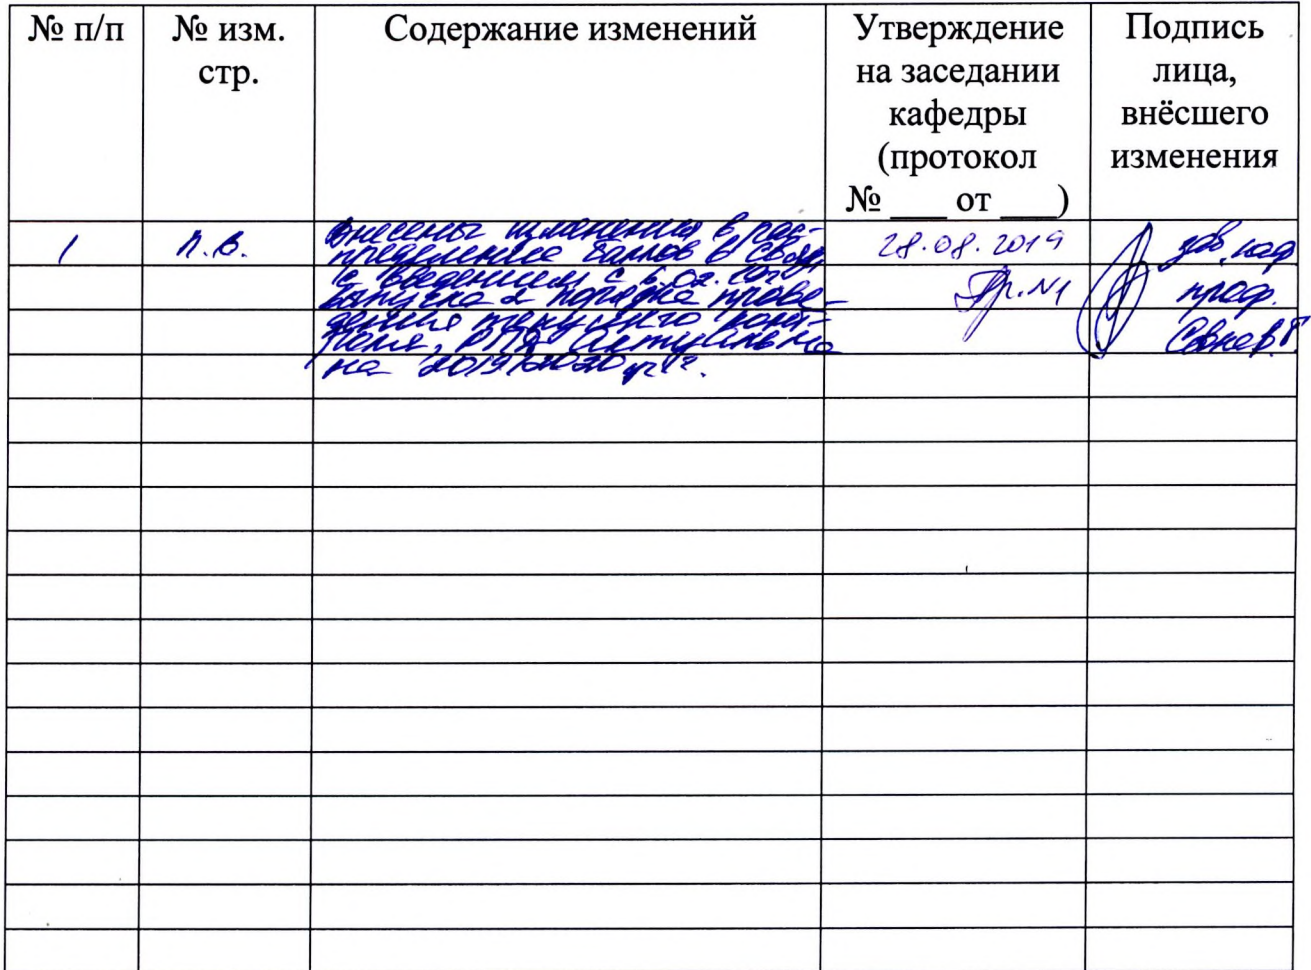 № п/п № изм. стр. Содержание изменений Утверждение на заседании кафедры (протокол № ___ от ___) Подпись лица, внёсшего изменения
1 п.в. Внесены изменения в рас-
пределение баллов в связи
с введением с 6.02.
выпуска порядка прове-
дения текущего конт-
роля, РПД актуальна
на 2019/2020 уч. г.
28.08.2019
Пр. №1
зав. каф
проф.